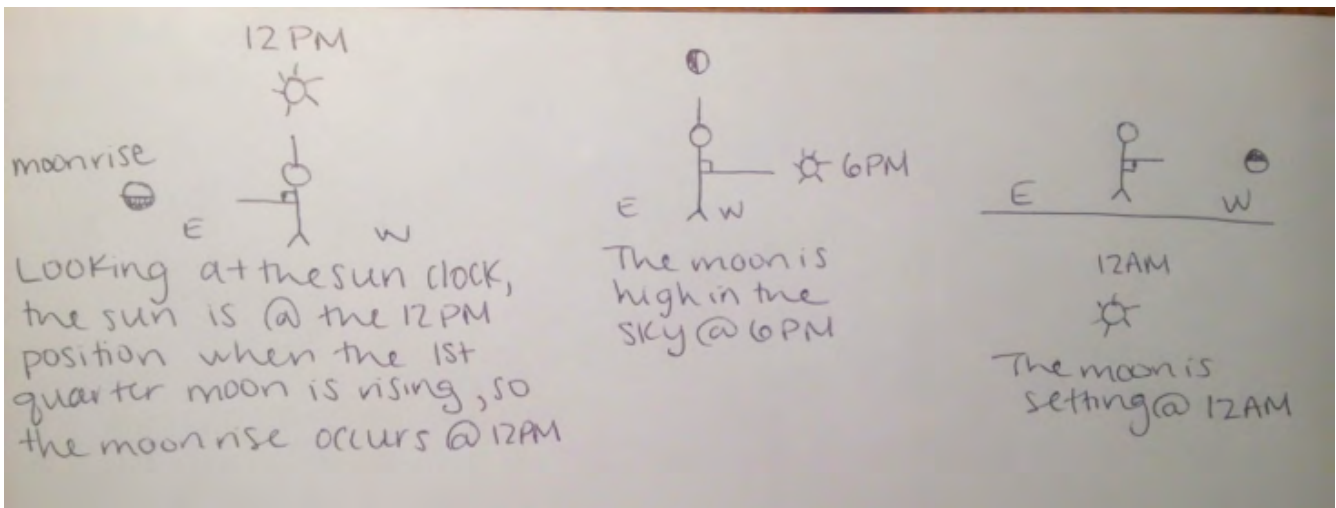 12 PM
moonrise
E
W
Looking at the sun clock,
the sun is @ the 12 PM
position when the 1st
quarter moon is rising, so
the moonrise occurs @ 12PM
6PM
E
W
The moon is
high in the
sky @ 6 PM
E
W
12AM
The moon is
setting @ 12AM